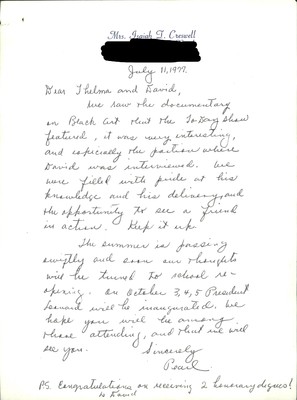 Mrs. Isaiah T. Creswell
July 11, 1977.
Dear Thelma and David,
We saw the documentary
on Black Art that the To Day Show
featured, it was very interesting,
and especially the portion where
David was interviewed. We
were filled with pride at his
knowledge and his delivery, and
the opportunity to see a friend
in action. Keep it up
The summer is passing
swiftly and soon our thoughts
will be turned to school re-
opening. On October 3, 4, 5 President
Leonard will be inaugurated. We
hope you will be among
those attending, and that we will
see you.
Sincerely
Pearl.
P.S. Congratulations on receiving 2 honorary degrees!
to David